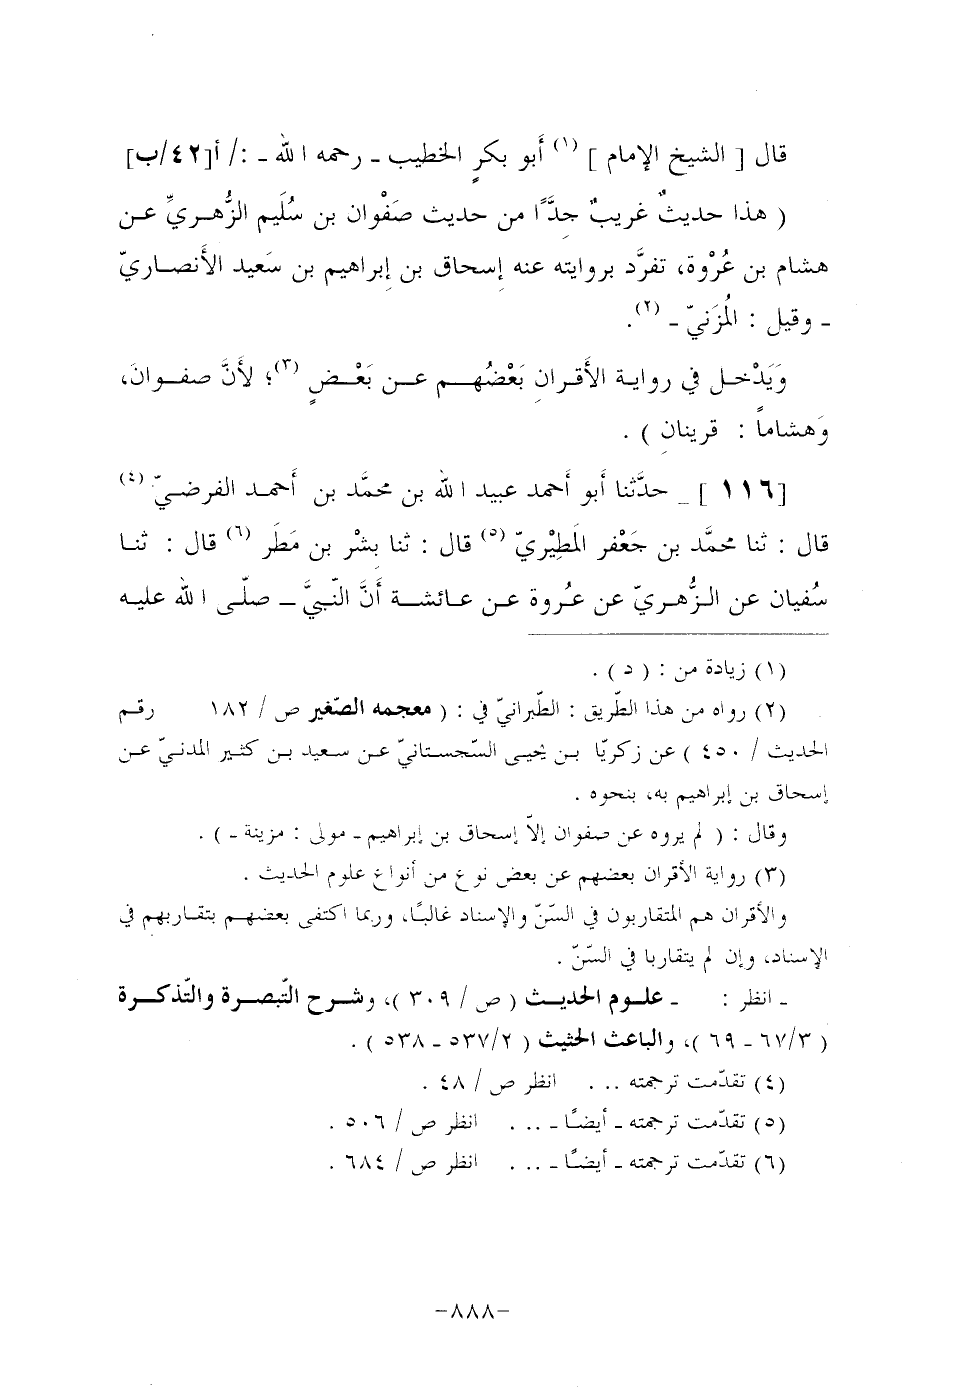 قال [ الشيخ الإمام ] (١) أبو بكرٍ الخطيب ـ رحمه الله ـ :/ أ[٤٢/ب]
( هذا حديثٌ غريبٌ جدًّا من حديث صَفْوان بن سُلَيم الزُّهريِّ عن
هشام بن عُرْوة، تفرَّد بروايته عنه إسحاق بن إبراهيم بن سَعيد الأنصاريّ
ـ وقيل : المُزَنيّ ـ (٢).
وَيَدْخل في رواية الأَقران بَعْضُهم عن بَعْضٍ (٣)؛ لأنَّ صفوانَ،
وَهشاماً : قرينان ) .
[١١٦ ] ـ حدَّثنا أبو أحمد عبيد الله بن محمَّد بن أحمد الفرضيّ (٤)
قال : ثنا محمَّد بن جَعْفر المَطِيْريّ (٥) قال : ثنا بشْر بن مَطَر (٦) قال : ثنا
سُفيان عن الزُّهريّ عن عُروة عن عائشة أنَّ النّبيَّ ـ صلّى الله عليه
(١) زيادة من : ( د ) .
(٢) رواه من هذا الطّريق : الطّبرانيّ في : ( معجمه الصّغير ص / ١٨٢ رقم
الحديث / ٤٥٠ ) عن زكريّا بن يحيى السّجستانيّ عن سعيد بن كثير المدنيّ عن
إسحاق بن إبراهيم به، بنحوه .
وقال : ( لم يروه عن صفوان إلاّ إسحاق بن إبراهيم ـ مولى : مزينة ـ ) .
(٣) رواية الأقران بعضهم عن بعض نوع من أنواع علوم الحديث .
والأقران هم المتقاربون في السّنّ والإسناد غالبًا، وربما اكتفى بعضهم بتقاربهم في
الإسناد، وإن لم يتقاربا في السّنّ .
ـ انظر : ـ علوم الحديث ( ص / ٣٠٩ )، وشرح التّبصرة والتّذكرة
( ٦٧/٣ ـ ٦٩ )، والباعث الحثيث ( ٥٣٧/٢ ـ ٥٣٨ ) .
(٤) تقدّمت ترجمته ... انظر ص / ٤٨ .
(٥) تقدّمت ترجمته ـ أيضًا ـ ... انظر ص / ٥٠٦ .
(٦) تقدّمت ترجمته ـ أيضًا ـ ... انظر ص / ٦٨٤ .
-٨٨٨-